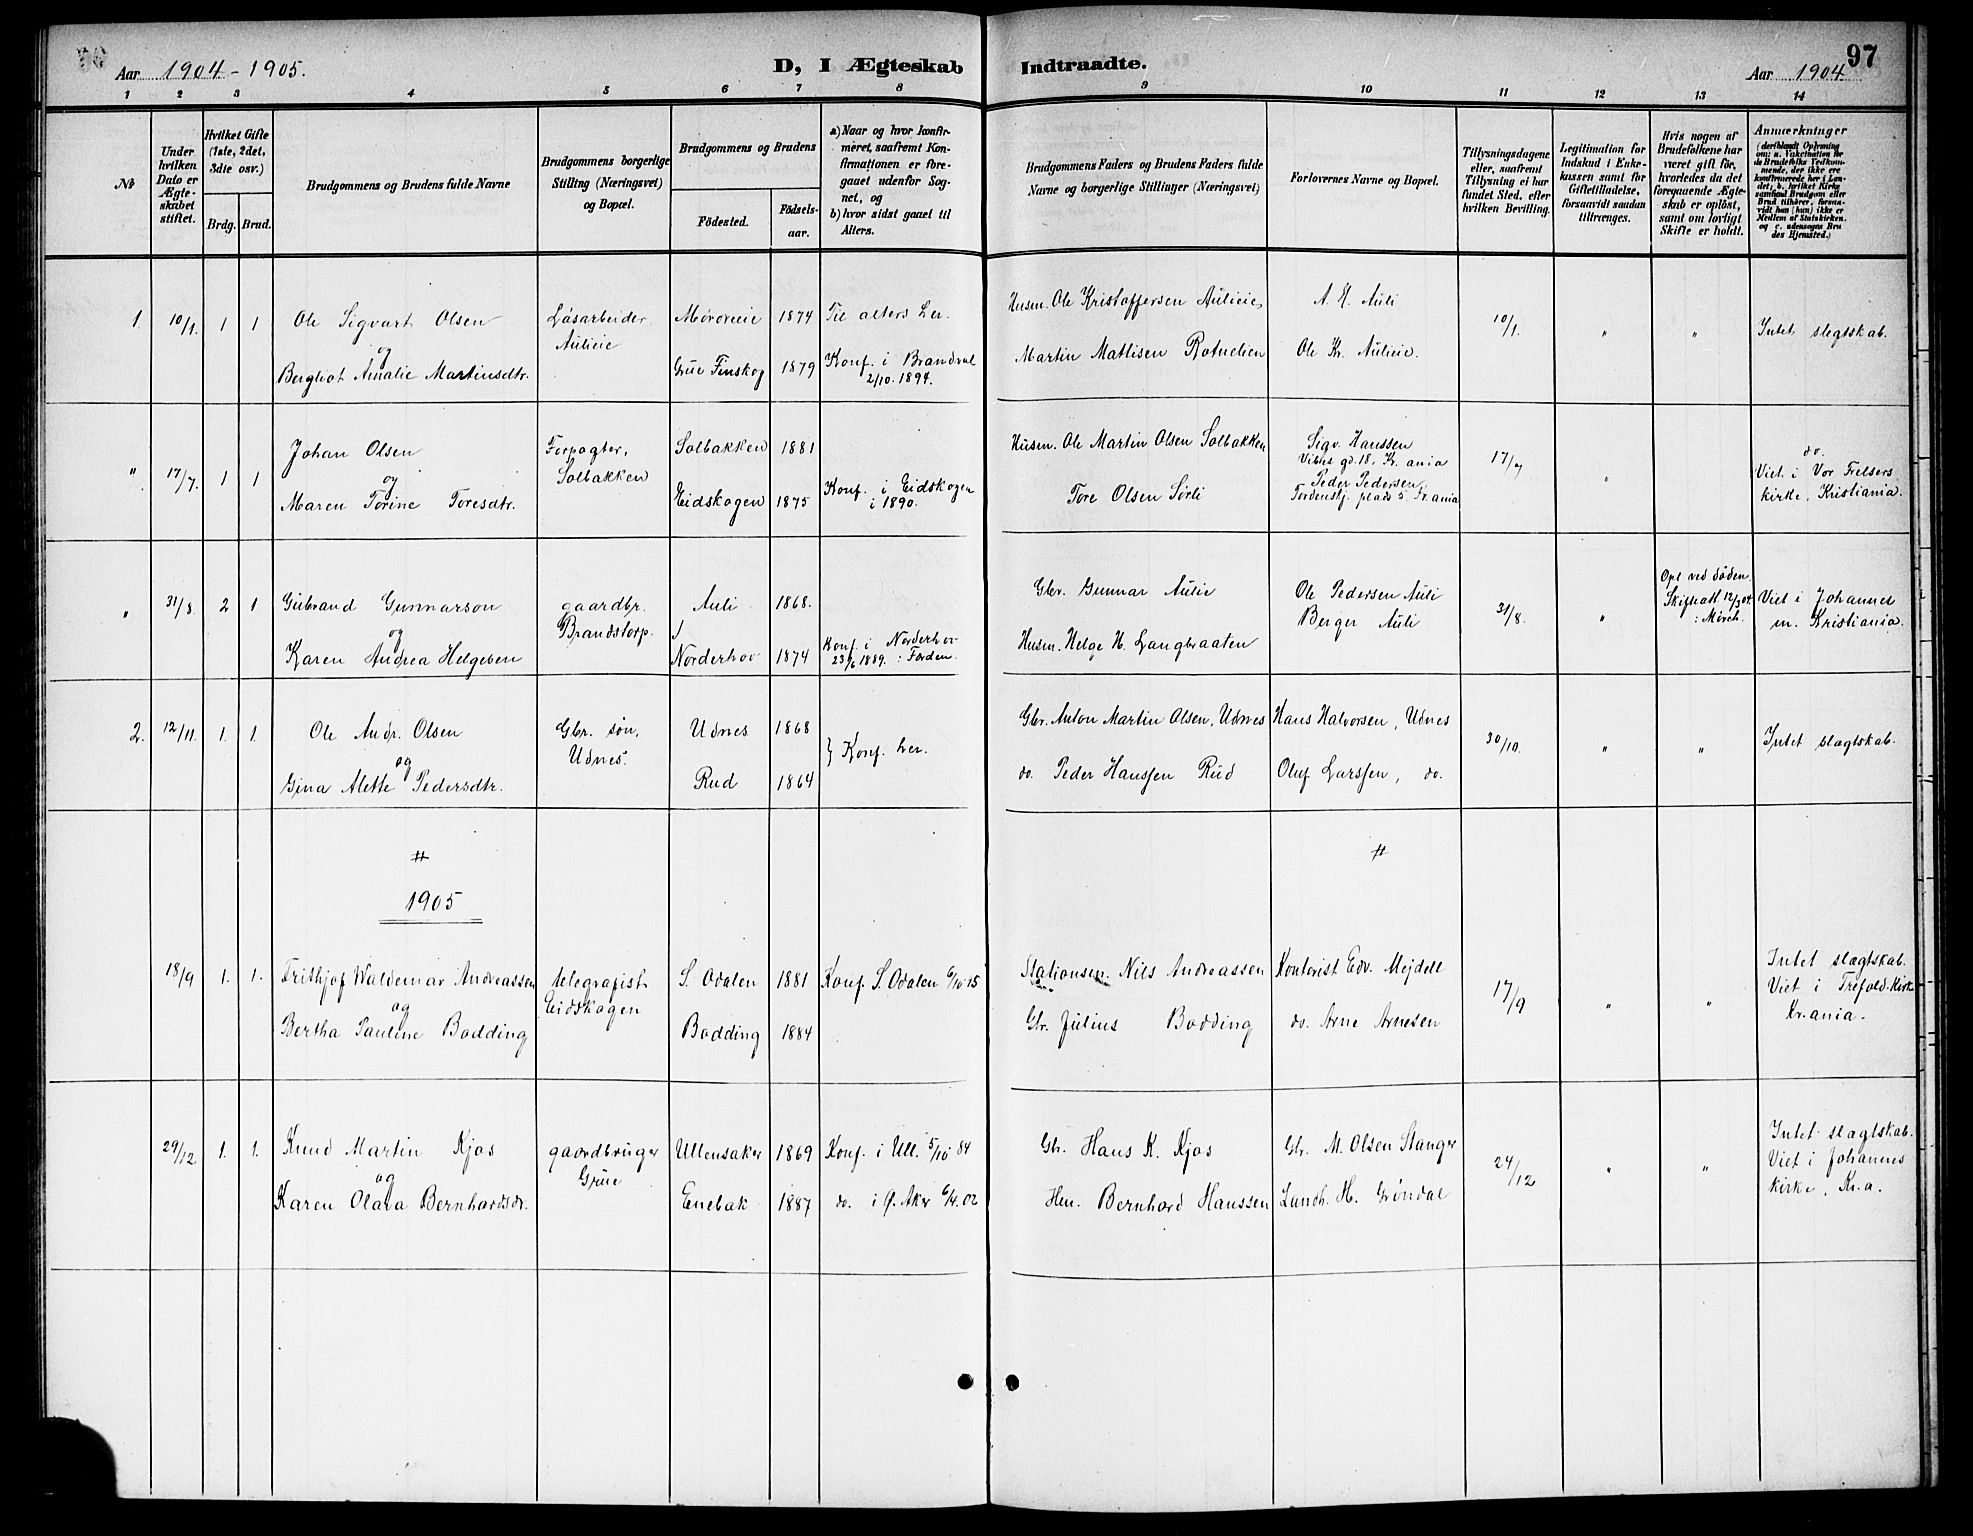 Aar 1904-1905.
D, I Ægteskab Indtraadte.
97
Aar 1904
1 2 3 4 5 6 7 8 9 10 11 12 13 14
№
Under hvilken Dato er Ægteskabet stiftet.
Hvilket Gifte (1ste, 2det, 3die osv.)
Brdg. Brud.
Brudgommens og Brudens fulde Navne
Brudgommens borgerlige Stilling (Næringsvei) og Bopæl.
Brudgommens og Brudens
Födested. Födsels-aar.
a) Naar og hvor konfirmeret, saafremt Konfirmationen er foregaaet udenfor Sognet, og
b) hvor sidst gaaet til Alters.
Brudgommens Faders og Brudens Faders fulde Navne og borgerlige Stillinger (Næringsvei)
Forlovernes Navne og Bopæl.
Tillysningsdagene eller, saafremt Tillysning ei har fundet Sted, efter hvilken Bevilling.
Legitimation for Indskud i Enkekassen samt for Giftetilladelse, forsaavidt saadan tiltrænges.
Hvis nogen af Brudefolkene har været gift för, hvorledes da det foregaaende Ægteskab er oplöst, samt om lovligt Skifte er holdt.
Anmærkninger (deriblandt Oplysning om: a. Vakcination for de Brudefolks Vedkommende, der ikke ere konfirmerede her i Landet; b. hvilket Kirkesamfund Brudgom eller Brud tilhører, forsaavidt han (hun) ikke er Medlem af Statskirken. og c. udensogns Brudes Hjemsted.)
1. 10/1. 1 1 Ole Sigvart Olsen Løsarbeider, Möroveie 1874 Til alters her. Husm. Ole Kristoffersen Aulieie, A. H. Auli 10/1. " " Intet slegtskab.
og Aulieie
Bergliot Amalie Martinsdtr. Grue Finskog 1879 Konf. i Brandval 2/10. 1894. Martin Mattisen Rotnelien Ole Kr. Aulieie.
" 17/7. 1 1 Johan Olsen Forpagter, Solbakken 1881 Husm. Ole Martin Olsen Solbakken Sigv. Hanssen 17/7 " do.
og Solbakken Vibes gd. 18, Kr.ania Viet i Vor Frelsers
Maren Torine Toresdtr. Eidskogen 1875 Konf. i Eidskogen i 1890. Tore Olsen Sörli Peder Pedersen, Tordenskj. plads 5 Kr.ania kirke, Kristiania.
" 31/8. 2 1 Gulbrand Gunnarson gaardbr. Auli 1868. Gbr. Gunnar Aulie Ole Pedersen Auli 31/8. " Opl. ved döden. Skifteatt. 12/3 04 : Mörch. Viet i Johannes
og Brandstorp. Berger Auli m. Kristiania.
Karen Andrea Helgesen Norderhov 1874 Konf. i Norderhov 23/6 1889. : Förden. Husm. Helge H. Langbraaten
2. 12/11. 1. 1. Ole Andr. Olsen Gbr. søn, Udnes 1868 } Konf. her. Gbr. Anton Martin Olsen, Udnes Hans Halvorsen, Udnes 30/10. " " Intet slægtskab.
og Udnes.
Gina Alette Pedersdtr. Rud 1864 do. Peder Hanssen Rud Oluf Larssen, do.
#
#
1905
18/9 1. 1. Frithjof Waldemar Andreassen telegrafist S. Odalen 1881 Konf. S. Odalen 6/10 95 Stationsm. Nils Andreassen Kontorist Edv. Mejdell 17/9 " " Intet slægtskab.
og Eidskogen Viet i Trefold.kirke
Bertha Pauline Bodding Bodding 1884 Gbr. Julius Bodding do. Arne Arnesen Kr.ania.
29/12. 1. 1. Knud Martin Kjos gaardbruger Ullensaker 1869 Konf. i Ull. 5/10 84 Gbr. Hans K. Kjos Gbr. M. Olsen Stanger 24/12 " " Intet slægtskab.
og Grue Viet i Johannes
Karen Olava Bernhardsdr. Enebak 1887 do. i Ø. Aker 6/4. 02 Hm. Bernhard Hanssen Landh. H. Gröndal kirke, Kr.a.